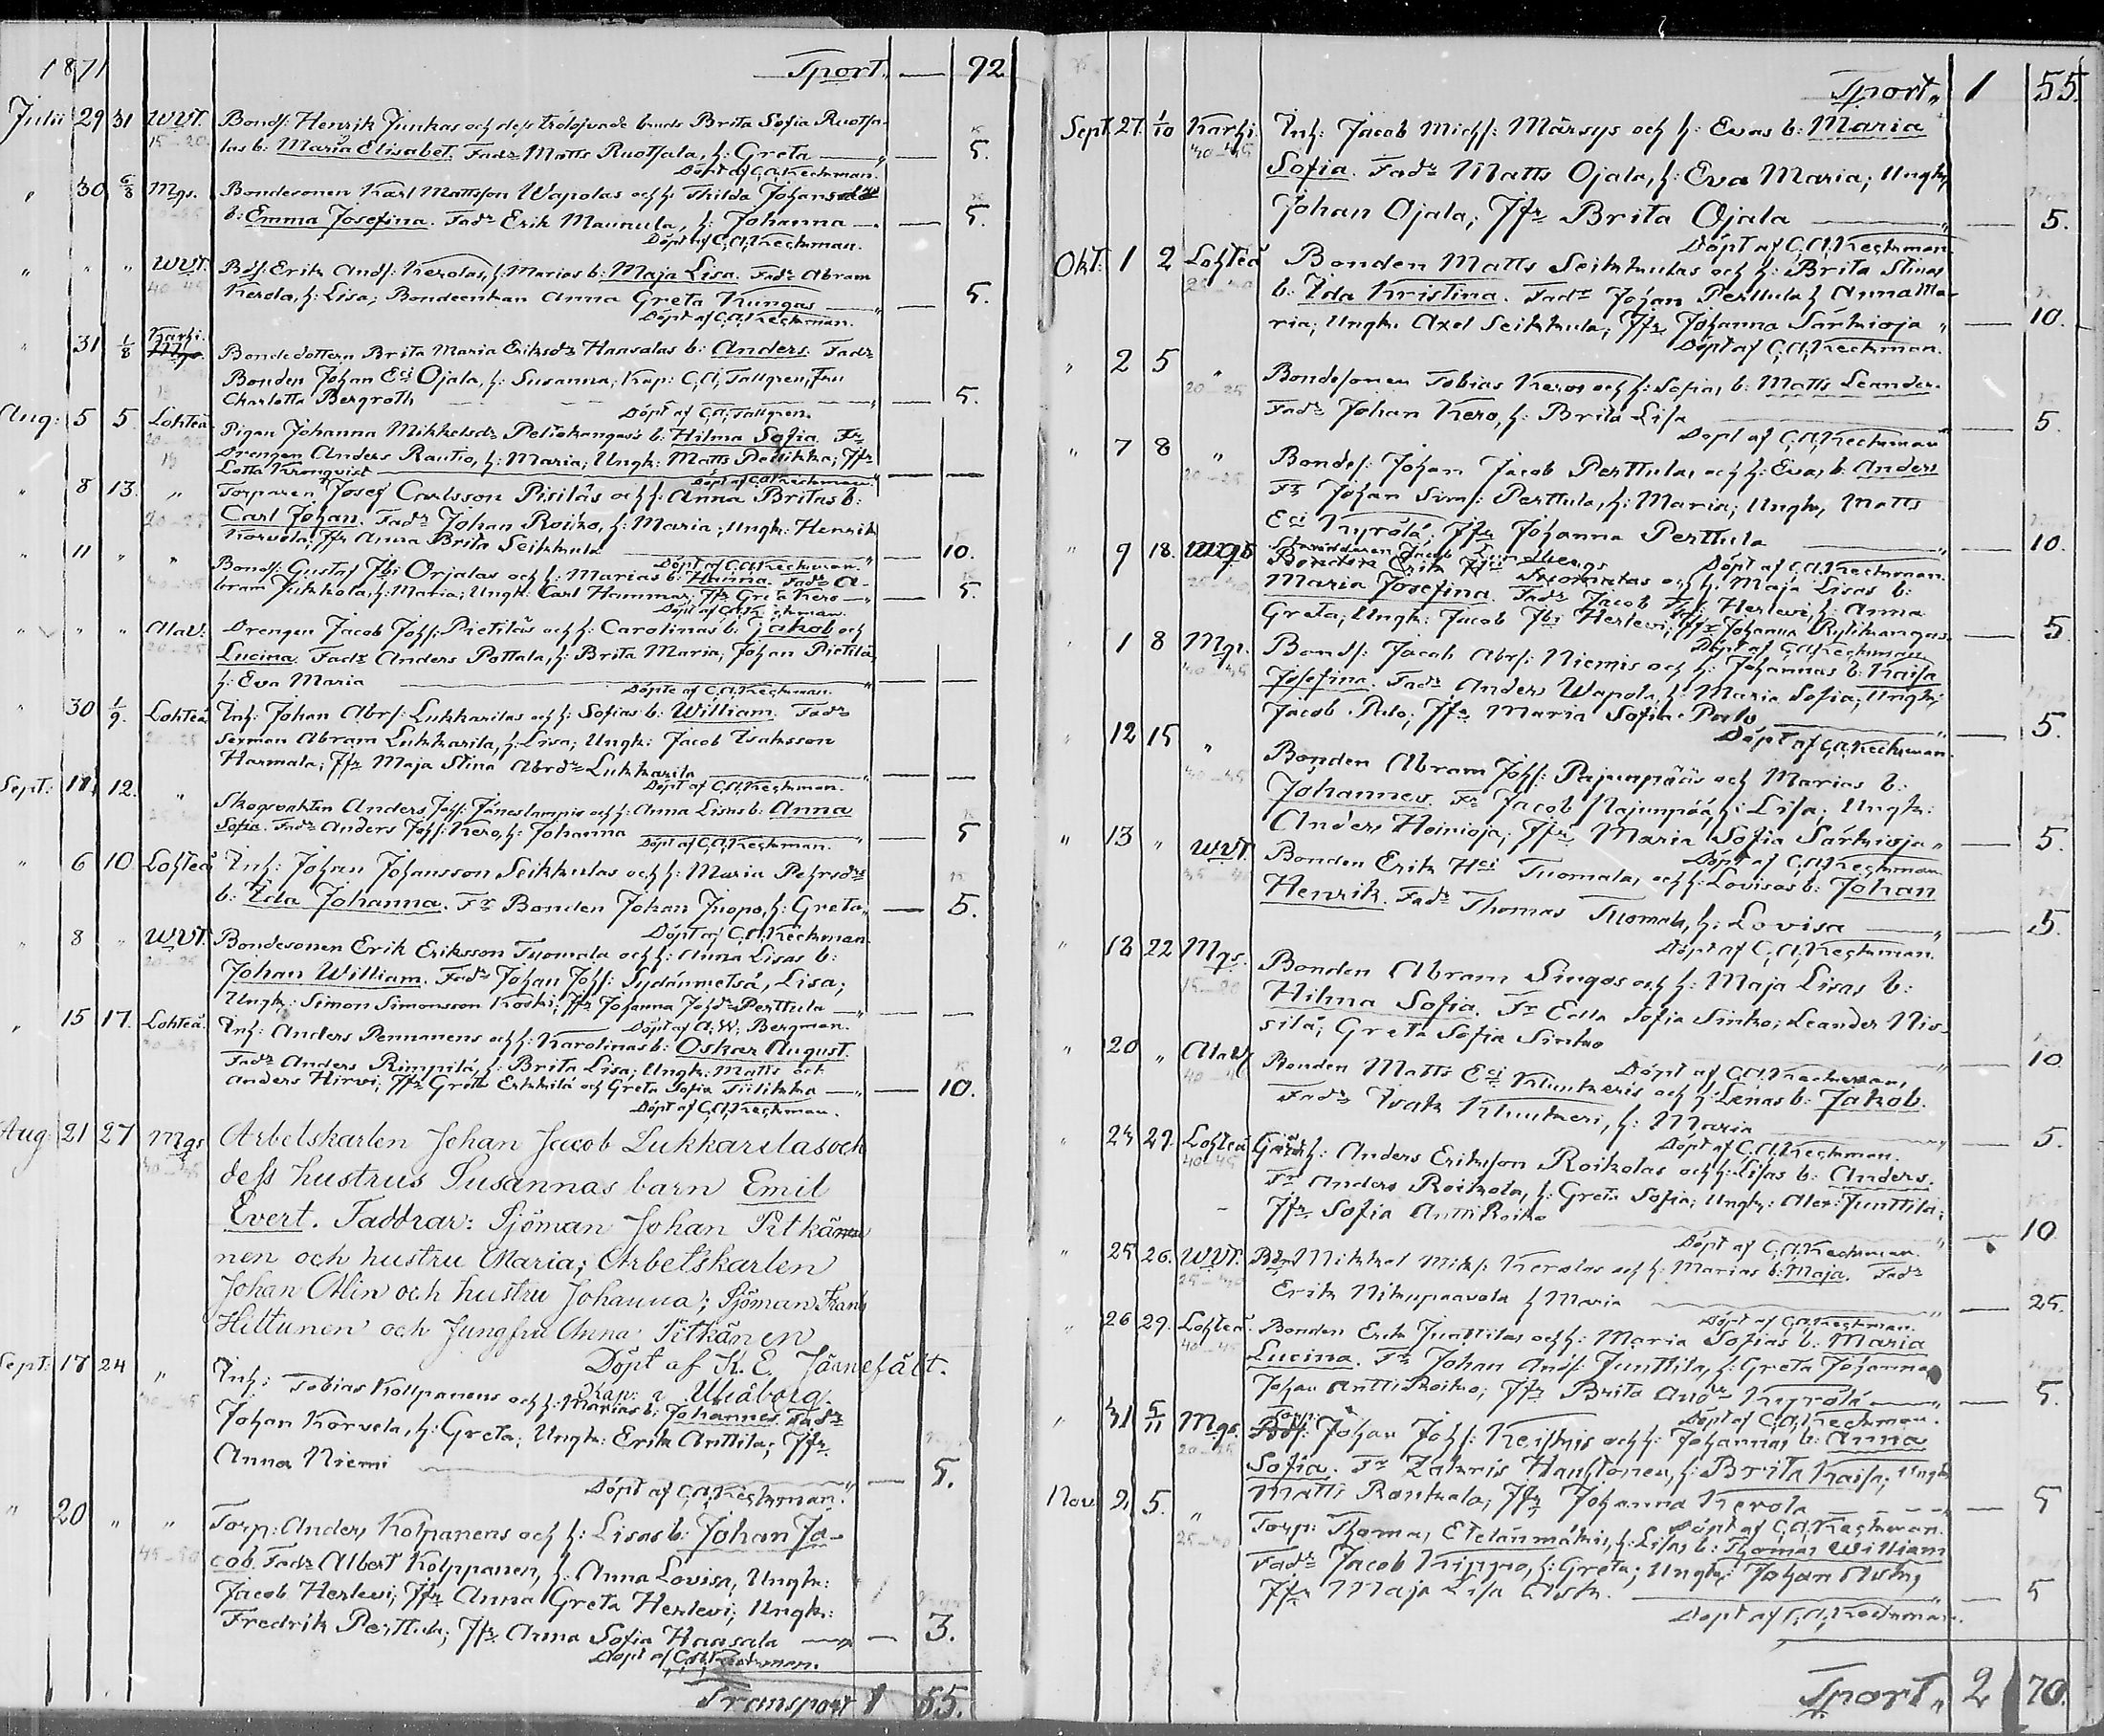 1871 Tport. — 92
Julii 29 31 WVT. Bonds: Henrik Junkas och dess trolofvade bruds Brita Sofia Ruotsa-
15-20 las b: Maria Elisabet. Fadr Matts Ruotsala, h: Greta — 5.
Döpt af C.A. Keckman.
" 30 6/8 Mgs. Bondesonen Karl Mattsson Wapolas och h: Thilda Johansdr
b: Emma Josefina. Fadr Erik Maunula, h: Johanna — 5.
Döpt af C.A. Keckman.
" " " WVT. Bds: Erik Ands: Kerolas, h: Marias b: Maja Lisa. Fadr Abram
40-45 Kerola, h: Lisa; Bondeenkan Anna Greta Kungas — 5.
Döpt af C.A. Keckman.
" 31 1/8 Karhi. Bondedottern Brita Maria Eriksdr Haasalas b: Anders. Fadr
Bonden Johan Eci Ojala, h: Susanna, Kap: C.A. Tallgren, Fru
Charlotta Bergroth — 5.
Döpt af C.A. Tallgren.
Aug: 5 5 Lohteå Pigan Johanna Mikkelsdr Peltokangas's b: Hilma Sofia. Fr
Drengen Anders Rautio, h: Maria; Ungk: Matts Pellikka; Jfr
Lotta Kronqvist —
Döpt af C.A. Keckman
" 8 13. " Torparen Josef Carlsson Pisiläs och h: Anna Britas b:
Carl Johan. Fadr Johan Roiko, h: Maria; Ungk: Henrik
Korvela; Jfr Anna Brita Seikkula — 10.
Döpt af C.A. Keckman.
" 11 " " Bonds: Gustaf Jbi Orjalas och h: Marias b: Hanna. Fadr A-
bram Jukkola, h: Maria; Ungk: Carl Hammar; Jfr Greta Kero — 5.
Döpt af C.A. Keckman.
" " " Alav: Drengen Jacob Johs: Pietiläs och h: Carolinas b: Jakob och
20-25 Lucina. Fadr Anders Pottala, h: Brita Maria; Johan Pietilä,
h: Eva Maria —
Döpte af C.A. Keckman.
" 30 1/9. Lohteå Inh: Johan Abrs: Lukkarilas och h: Sofias b: William. Fadr
20-25 Sexman Abram Lukkarila, h: Lisa; Ungk: Jacob Isaksson
Harmala; Jfr Maja Stina Abrdr Lukkarila —
Döpt af C.A. Keckman.
Sept: 11 12. " Skogsvakten Anders Johs: Jäneslampis och h: Anna Lisas b: Anna
Sofia. Fadr Anders Johs: Kero, h: Johanna — 5
Döpt af C.A. Keckman.
" 6 10 Lohteå Inh: Johan Johansson Seikkulas och h: Maria Pehrsdrs
b: Ida Johanna. Fr Bonden Johan Juopo, h: Greta — 5.
Döpt af C.A. Keckman
" 8 " WVT. Bondesonen Erik Eriksson Tuomala och h: Anna Lisas b:
20-25 Johan William. Fadr Johan Johs: Sydänmetsä, Lisa;
Ungk: Simon Simonsson Koski; Jfr Johanna Johdr Perttula —
Döpt af A.W. Bergman.
" 15 17. Lohteå. Inh: Anders Pennanens och h: Karolinas b: Oskar August.
Fadr Anders Rimpilä, h: Brita Lisa; Ungk: Matts och
Anders Hirvi; Jfr Greta Erkkilä och Greta Sofia Tiilikka — 10.
Döpt af C.A. Keckman.
Aug: 21 27 Mgs Arbetskarlen Johan Jacob Lukkarilas och
dess hustrus Susannas barn Emil
Evert. Faddrar: Sjöman Johan Pitkänen
nen och hustru Maria; Arbetskarlen
Johan Alin och hustru Johanna; Sjöman Frans
Hiltunen och Jungfru Anna Pitkänen
Döpt af K. E. Järnefält.
Kap: i Uleåborg.
Sept: 17 24 " Inh: Tobias Kolppanens och h: Marias b: Johannes. Fadr
40-45 Johan Korvela, h: Greta; Ungk: Erik Anttila; Jfr
Anna Niemi — 5.
Döpt af C.A. Keckman.
" 20 " " Torp: Anders Kolpanens och h: Lisas b: Johan Ja-
45-50 cob. Fadr Albert Kolppanen, h: Anna Lovisa, Ungk:
Jacob Herlevi; Jfr Anna Greta Herlevi; Ungk:
Fredrik Perttula; Jfr Anna Sofia Haasala — 3.
Döpt af C.A. Keckman.
Transport 1 55.
Tport " 1 55.
Sept. 27. 1/10 Karhi. Inh: Jacob Michs: Märsys och h: Evas b: Maria
40-45 Sofia. Fadr Matts Ojala, h: Eva Maria; Ungk,
Johan Ojala; Jfr Brita Ojala — 5.
Döpt af C.A. Keckman.
Okt: 1 2 Lohteå Bonden Matts Seikkulas och h: Brita Stinas
b: Ida Kristina. Fadr Johan Perttula h Anna Ma-
ria; Ungk. Axel Seikkula; Jfr Johanna Särkioja " — 10.
Döpt af C.A. Keckman.
" 2 5 " Bondesonen Tobias Keros och h: Sofias b: Matts Leander.
20-25 Fadr Johan Kero, h: Brita Lisa — 5.
Döpt af C.A. Keckman
" 7 8 " Bondes: Johan Jacob Perttulas och h: Evas b: Anders
20-25 Fr Johan Sims: Perttula, h: Maria; Ungk, Matts
Eci Kyrölä; Jfr Johanna Perttula — 10.
Döpt af C.A. Keckman.
" 9 18. Skräddaren Jacob Lundbergs
och h. Maja Lisas b:
Maria Josefina. Fadr Jacob Jbi Herlevi, h: Anna
Greta; Ungk: Jacob Jbi Herlevi; Jfr Johanna Rytikangas — 5
Döpt af C.A. Keckman
" 1 8 Mgs. Bonds: Jacob Abrs: Niemis och h: Johannas b: Kaisa
40-45 Josefina. Fadr Anders Wapola, h: Maria Sofia; Ungk:
Jacob Palo; Jfr Maria Sofia Palo — 5.
Döpt af C.A. Keckman.
" 12 15 " Bonden Abram Johs: Pajunpääs och Marias b:
40-45 Johannes. Fr Jacob Pajunpää h: Lisa; Ungk:
Anders Heinioja; Jfr Maria Sofia Särkioja " — 5.
Döpt af C.A. Keckman
" 13 " WVT. Bonden Erik Hci Tuomalas och h: Lovisas b: Johan
Henrik. Fadr Thomas Tuomala, h: Lovisa — 5.
Döpt af C.A. Keckman.
" 18 22 Mgs. Bonden Abram Lingos och h: Maja Lisas b:
15-20 Hilma Sofia. Fr Eella Sofia Sinko; Leander Nis-
silä; Greta Sofia Sinko — 10
Döpt af C.A. Keckman,
" 20 " Alav Bonden Matts Eci Kluukeris och h: Lenas b: Jakob.
Fadr Isak Kluukeri, h: Maria — 5.
Döpt af C.A. Keckman.
" 24 29. Lohteå h: Anders Eriksson Roikolas och h: Lisas b: Anders.
40-45 Fr Anders Roikola, h: Greta Sofia; Ungk: Alex: Junttila;
Jfr. Sofia AnttiRoiko — 10
Döpt af C.A. Keckman.
" 25 26. WVT. Mikkel Miks: Kerolas och h: Marias b: Maja. Fadr
Erik Nikupaavola h Maria — 25.
Döpt af C.A. Keckman.
" 26 29. Lohteå. Bonden Erik Junttilas och h: Maria Sofias b: Maria
40-45 Lucina. Fr Johan Ands: Junttila, h: Greta Johanna
Johan AnttiRoiko; Jfr Brita Andr Kyrölä — 5.
Döpt af C.A. Keckman.
" 31 5/11 Mgs. Torp: Johan Johs: Keiskis och h: Johannas b: Anna
Sofia. Fr Zakris Hauhtonen, h: Brita Kaisa; Ungk
Matts Raukala; Jfr Johanna Kerola — 5
Döpt af C.A. Keckman.
Nov. 2. 5. " Torp: Thomas Etelänmäkis, h: Lisas b: Thomas William
Fadr Jacob Kippo, h: Greta; Ungk: Johan Ask;
Jfr Maja Lisa Ask. — 5
Döpt af C.A. Keckman.
Tport " 2 70.